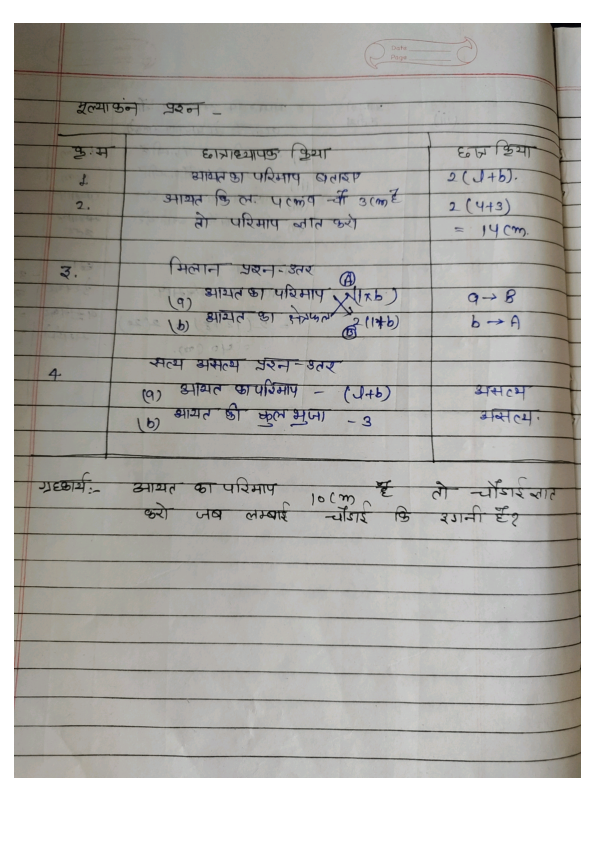 Date
Page
मूल्याकंन प्रश्न -
क्र.म छात्राध्यापक क्रिया छात्र क्रिया
1. आयत का परिमाप बताइए 2(l+b).
2. आयत कि ल. 4cm व चौ 3cm है 2(4+3)
तो परिमाप ज्ञात करो = 14cm.
3. मिलान प्रश्न-उतर
A
(a) आयत का परिमाप (l×b) a→B
(b) आयत का क्षेत्रफल 2(l+b) b→A
B
4. सत्य असत्य प्रश्न-उतर
(a) आयत का परिमाप - (l+b) असत्य
(b) आयत की कुल भुजा - 3 असत्य.
ग्रहकार्य:- आयत का परिमाप 10cm है तो चौंडाई ज्ञात
करो जब लम्बाई चौंडाई कि इगनी है?